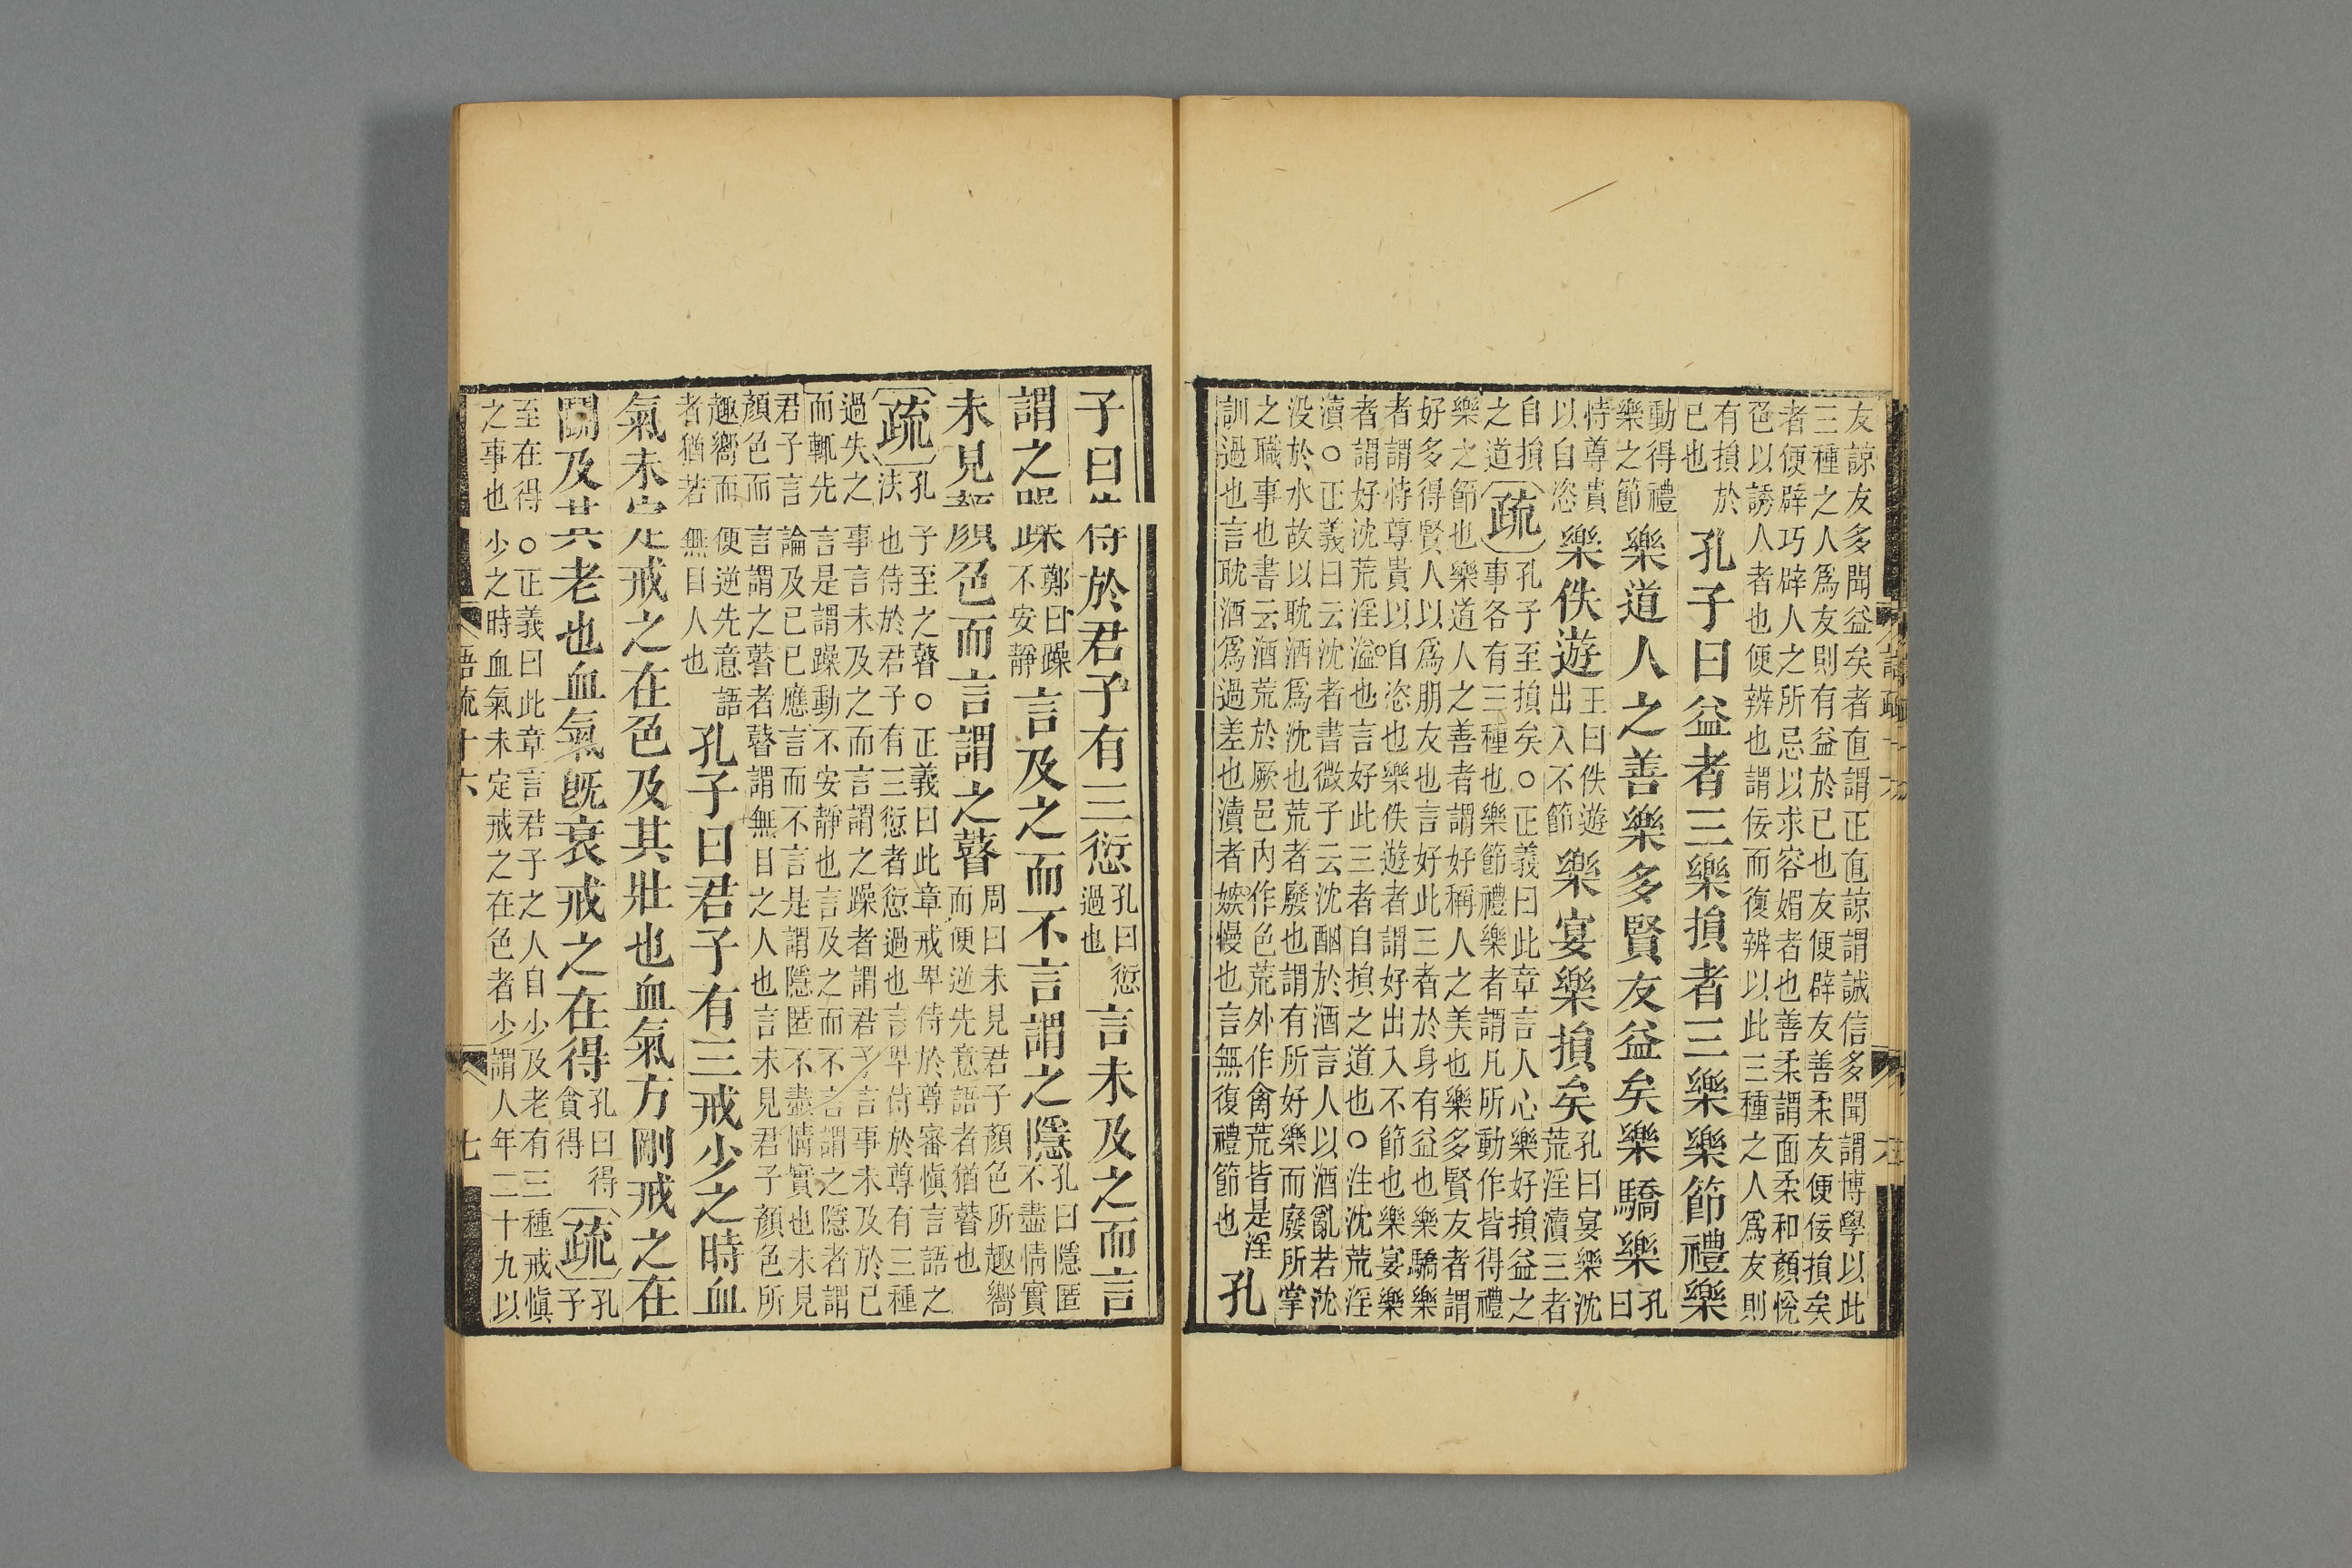 友諒友多聞益矣者直謂正直諒謂誠信多聞謂博學以此
三種之人爲友則有益於己也友便辟友善柔友便佞損矣
者便辟巧辟人之所忌以求容媚者也善柔謂面柔和顏悅
色以誘人者也便辨也謂佞而復辨以此三種之人爲友則
有損於已也孔子曰益者三樂損者三樂樂節禮樂
動得禮樂之節樂道人之善樂多賢友益矣樂驕樂孔曰
恃尊貴以自恣樂佚遊王曰佚遊出入不節樂宴樂損矣孔曰宴樂沈荒淫瀆三者
自損之道疏孔子至損矣○正義曰此章言人心樂好損益之事各有三種也樂節禮樂者謂凡所動作皆得禮
樂之節也樂道人之善者謂好稱人之美也樂多賢友者謂
好多得賢人以爲朋友也言好此三者於身有益也樂驕樂
者謂恃尊貴以自恣也樂佚遊者謂好出入不節也樂宴樂
者謂好沈荒淫溢也言好此三者自損之道也○注沈荒淫
瀆○正義曰云沈者書微子云沈酗於酒言人以酒亂若沈
没於水故以耽酒爲沈也荒者廢也謂有所好樂而廢所掌
之職事也書云酒荒於厥邑内作色荒外作禽荒皆是淫
訓過也言耽酒爲過差也瀆者嫉慢也言無復禮節也孔
子曰侍於君子有三愆孔曰愆過也言未及之而言
謂之躁鄭曰躁不安靜言及之而不言謂之隱孔曰隱匿不盡情實
未見顏色而言謂之瞽周曰未見君子顏色所趣嚮而便逆先意語者猶瞽也
疏孔子至之瞽○正義曰此章戒卑侍於尊審慎言語之法也侍於君子有三愆者愆過也言卑侍於尊有三種
過失之事言未及之而言謂之躁者謂君子言事未及於己
而輒先言是謂躁動不安靜也言及之而不言謂之隱者謂
君子言論及己已應言而不言是謂隱匿不盡情實也未見
顏色而言謂之瞽者瞽謂無目之人也言未見君子顏色所
趣嚮而便逆先意語者猶若無目人也孔子曰君子有三戒少之時血
氣未定戒之在色及其壯也血氣方剛戒之在
鬭及其老也血氣旣衰戒之在得孔曰得貪得疏孔子
至在得○正義曰此章言君子之人自少及老有三種戒慎
之事也少之時血氣未定戒之在色者少謂人年二十九以
語疏十六
七